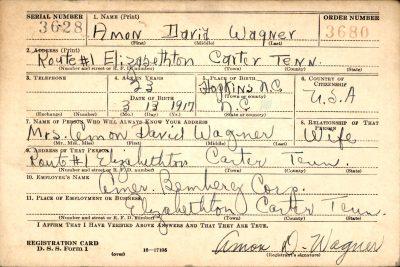 SERIAL NUMBER 1. NAME (Print) ORDER NUMBER
3628 Amon David Wagner 3680
(First) (Middle) (Last)
2. ADDRESS (Print)
Route #1 Elizabethton Carter Tenn.
(Number and street or R. F. D. number) (Town) (County) (State)
3. TELEPHONE 4. AGE IN YEARS 5. PLACE OF BIRTH 6. COUNTRY OF CITIZENSHIP
23 Hopkins N.C.
(Town or county)
DATE OF BIRTH U.S.A
3 13 1917 N.C.
(Exchange) (Number) (Mo.) (Day) (Yr.) (State or country)
7. NAME OF PERSON WHO WILL ALWAYS KNOW YOUR ADDRESS 8. RELATIONSHIP OF THAT PERSON
Mrs. Amon David Wagner Wife
(Mr., Mrs., Miss) (First) (Middle) (Last)
9. ADDRESS OF THAT PERSON
Route #1 Elizabethton Carter Tenn.
(Number and street or R. F. D. number) (Town) (County) (State)
10. EMPLOYER'S NAME
Amer. Bemberg Corp.
11. PLACE OF EMPLOYMENT OR BUSINESS
Elizabethton Carter Tenn.
(Number and street or R. F. D. number) (Town) (County) (State)
I AFFIRM THAT I HAVE VERIFIED ABOVE ANSWERS AND THAT THEY ARE TRUE.
REGISTRATION CARD
D. S. S. Form 1 (over) 16—17105 Amon D. Wagner
(Registrant's signature)